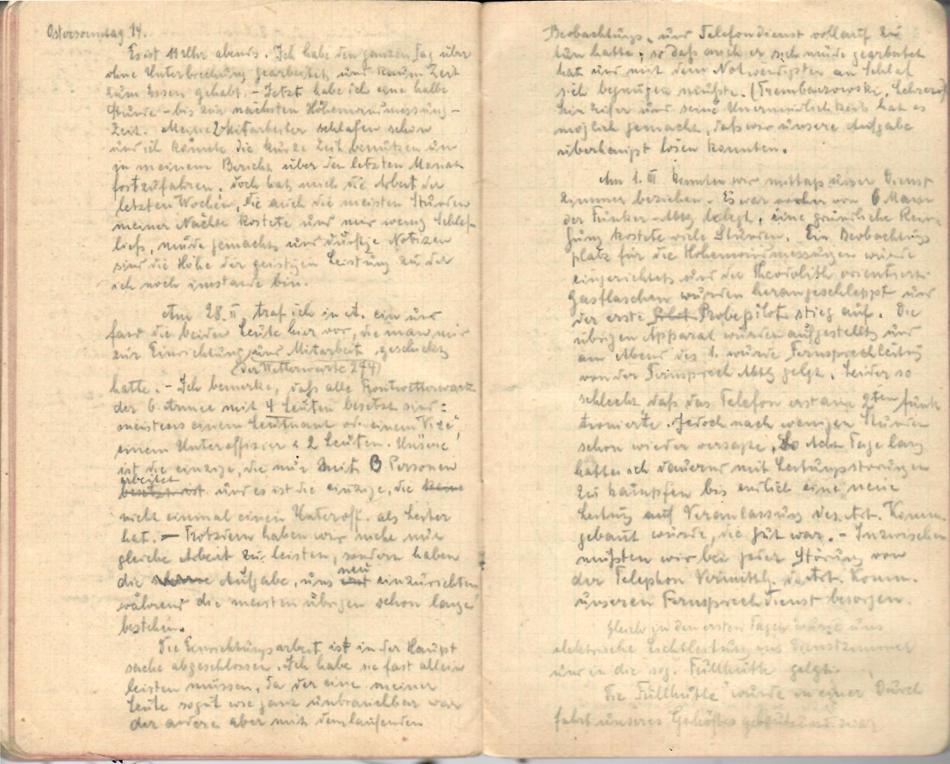 Ostersonntag 14.
Es ist 11 Uhr abends. Ich habe den ganzen Tag über
ohne Unterbrechung gearbeitet und kaum Zeit
zum Essen gehabt. - Jetzt habe ich eine halbe
Stunde - bis zur nächsten Höhenwindmessung -
Zeit. Meine Mitarbeiter schlafen schon
und ich könnte die kurze Zeit benützen um
in meinem Bericht über den letzten Monat
fortzufahren. Doch hat mich die Arbeit der
letzten Wochen, die auch die meisten Stunden
meiner Nächte kostete und mir wenig Schlaf
ließ, müde gemacht und dürftige Notizen
sind die Höhe der geistigen Leistung zu der
ich noch imstande bin.
Am 28. II. traf ich in A. ein und
fand die beiden Leute hier vor, die man mir
zur Einrichtung und Mitarbeit geschickt
(der Wetterwarte 274)
hatte. - Ich bemerke, daß alle Frontwetterwarten
der 6. Armee mit 4 Leuten besetzt sind:
meistens einem Leutnant od. einem Vize,
einem Unteroffizier u 2 Leuten. Unsere
ist die einzige, die nur mit 3 Personen
arbeitet
besetzt ist und es ist die einzige, die keine
nicht einmal einen Unteroff. als Leiter
hat. - Trotzdem haben wir nicht nur
gleiche Arbeit zu leisten, sondern haben
die Aufgabe, uns neu einzurichten
während die meisten übrigen schon lange
bestehen.
Die Einrichtungsarbeit ist in der Haupt
sache abgeschlossen. Ich habe sie fast allein
leisten müssen, da der eine meiner
Leute so gut wie ganz unbrauchbar war
der andere aber mit dem laufenden
Beobachtungs- und Telefondienst vollauf zu
tun hatte, so daß auch er sich müde gearbeitet
hat und mit dem Notwendigsten an Schlaf
sich begnügen mußte. (Trembaczowski, Lehrer)
Sein Eifer und seine Unermüdlichkeit hat es
möglich gemacht, daß wir unsere Aufgabe
überhaupt lösen konnten.
Am 1. III. konnten wir mittags unser Dienst
zimmer beziehen. Es war vorher von 6 Mann
der Funker-Abtg belegt, eine gründliche Reini
gung kostete viele Stunden. Ein Beobachtungs
platz für die Höhenwindmessungen wurde
eingerichtet und der Theodolith orientiert.
Gasflaschen wurden herangeschleppt und
der erste Pilot Probepilot stieg auf. Die
übrigen Apparate wurden aufgestellt und
am Abend des 1. wurde Fernsprechleitung
von der Fernsprech Abtg gelegt. Leider so
schlecht daß das Telefon erst am 2ten funk
tionierte. Jedoch nach wenigen Stunden
schon wieder versagte. So acht Tage lang
hatte ich dauernd mit Leitungsstörungen
zu kämpfen bis endlich eine neue
Leitung auf Veranlassung des Art. Komm.
gebaut wurde, die gut war. - Inzwischen
mußten wir bei jeder Störung von
der Telephon Vermittl. d. Art. Komm.
unseren Fernsprechdienst besorgen.
Gleich in den ersten Tagen wurde uns
elektrische Lichtleitung ins Dienstzimmer
und in die sog. Füllhütte gelegt.
Die Füllhütte wurde in einer Durch
fahrt unseres Gehöftes